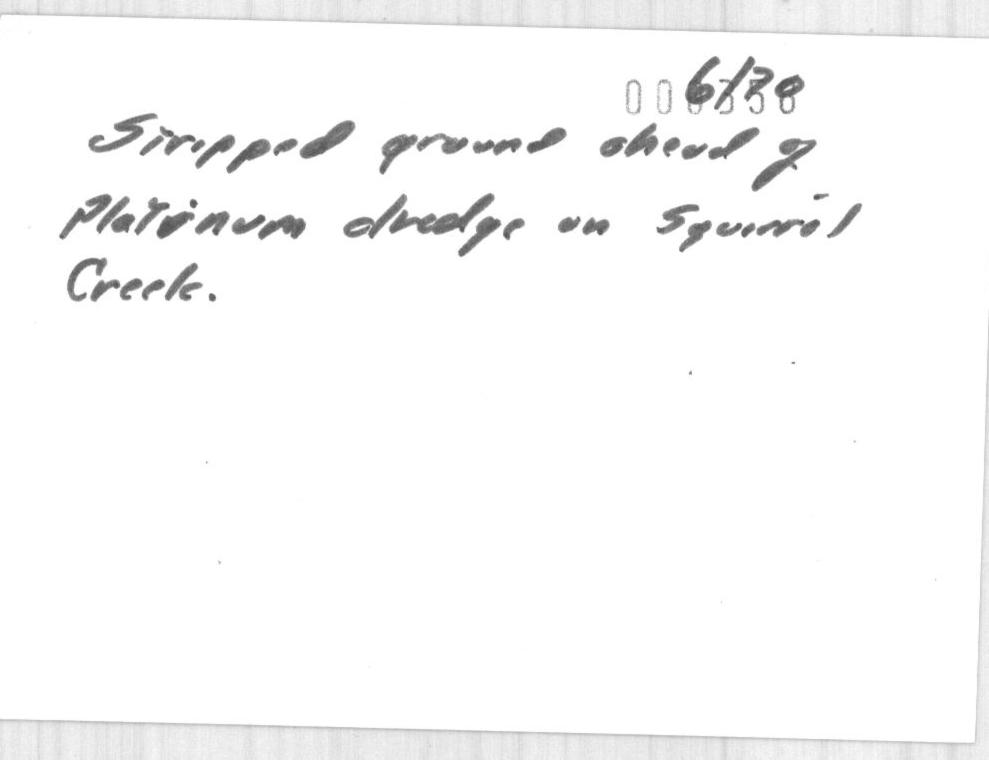 6/78
Stripped ground ahead of
Platinum dredge on Squirrel
Creek.